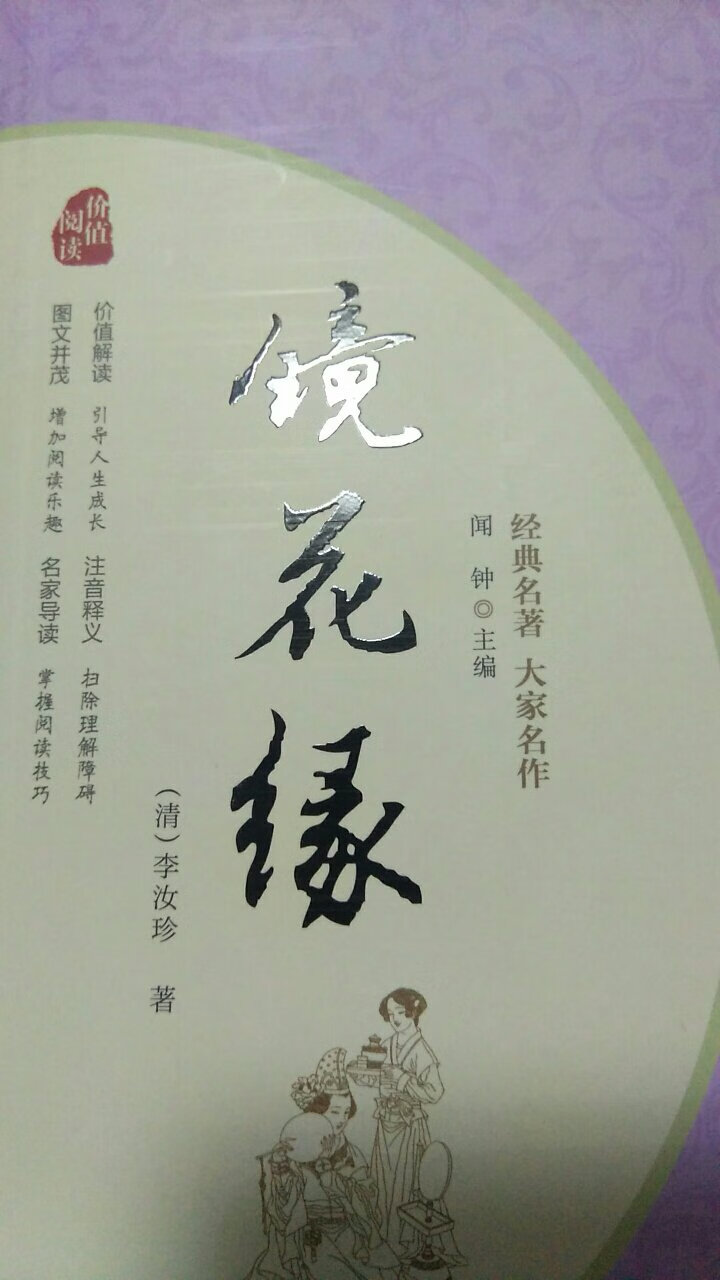 经典名著 大家名作
闻 钟◎主编
镜花缘
(清)李汝珍 著
价值
阅读
价值解读 引导人生成长 注音释义 扫除理解障碍
图文并茂 增加阅读乐趣 名家导读 掌握阅读技巧